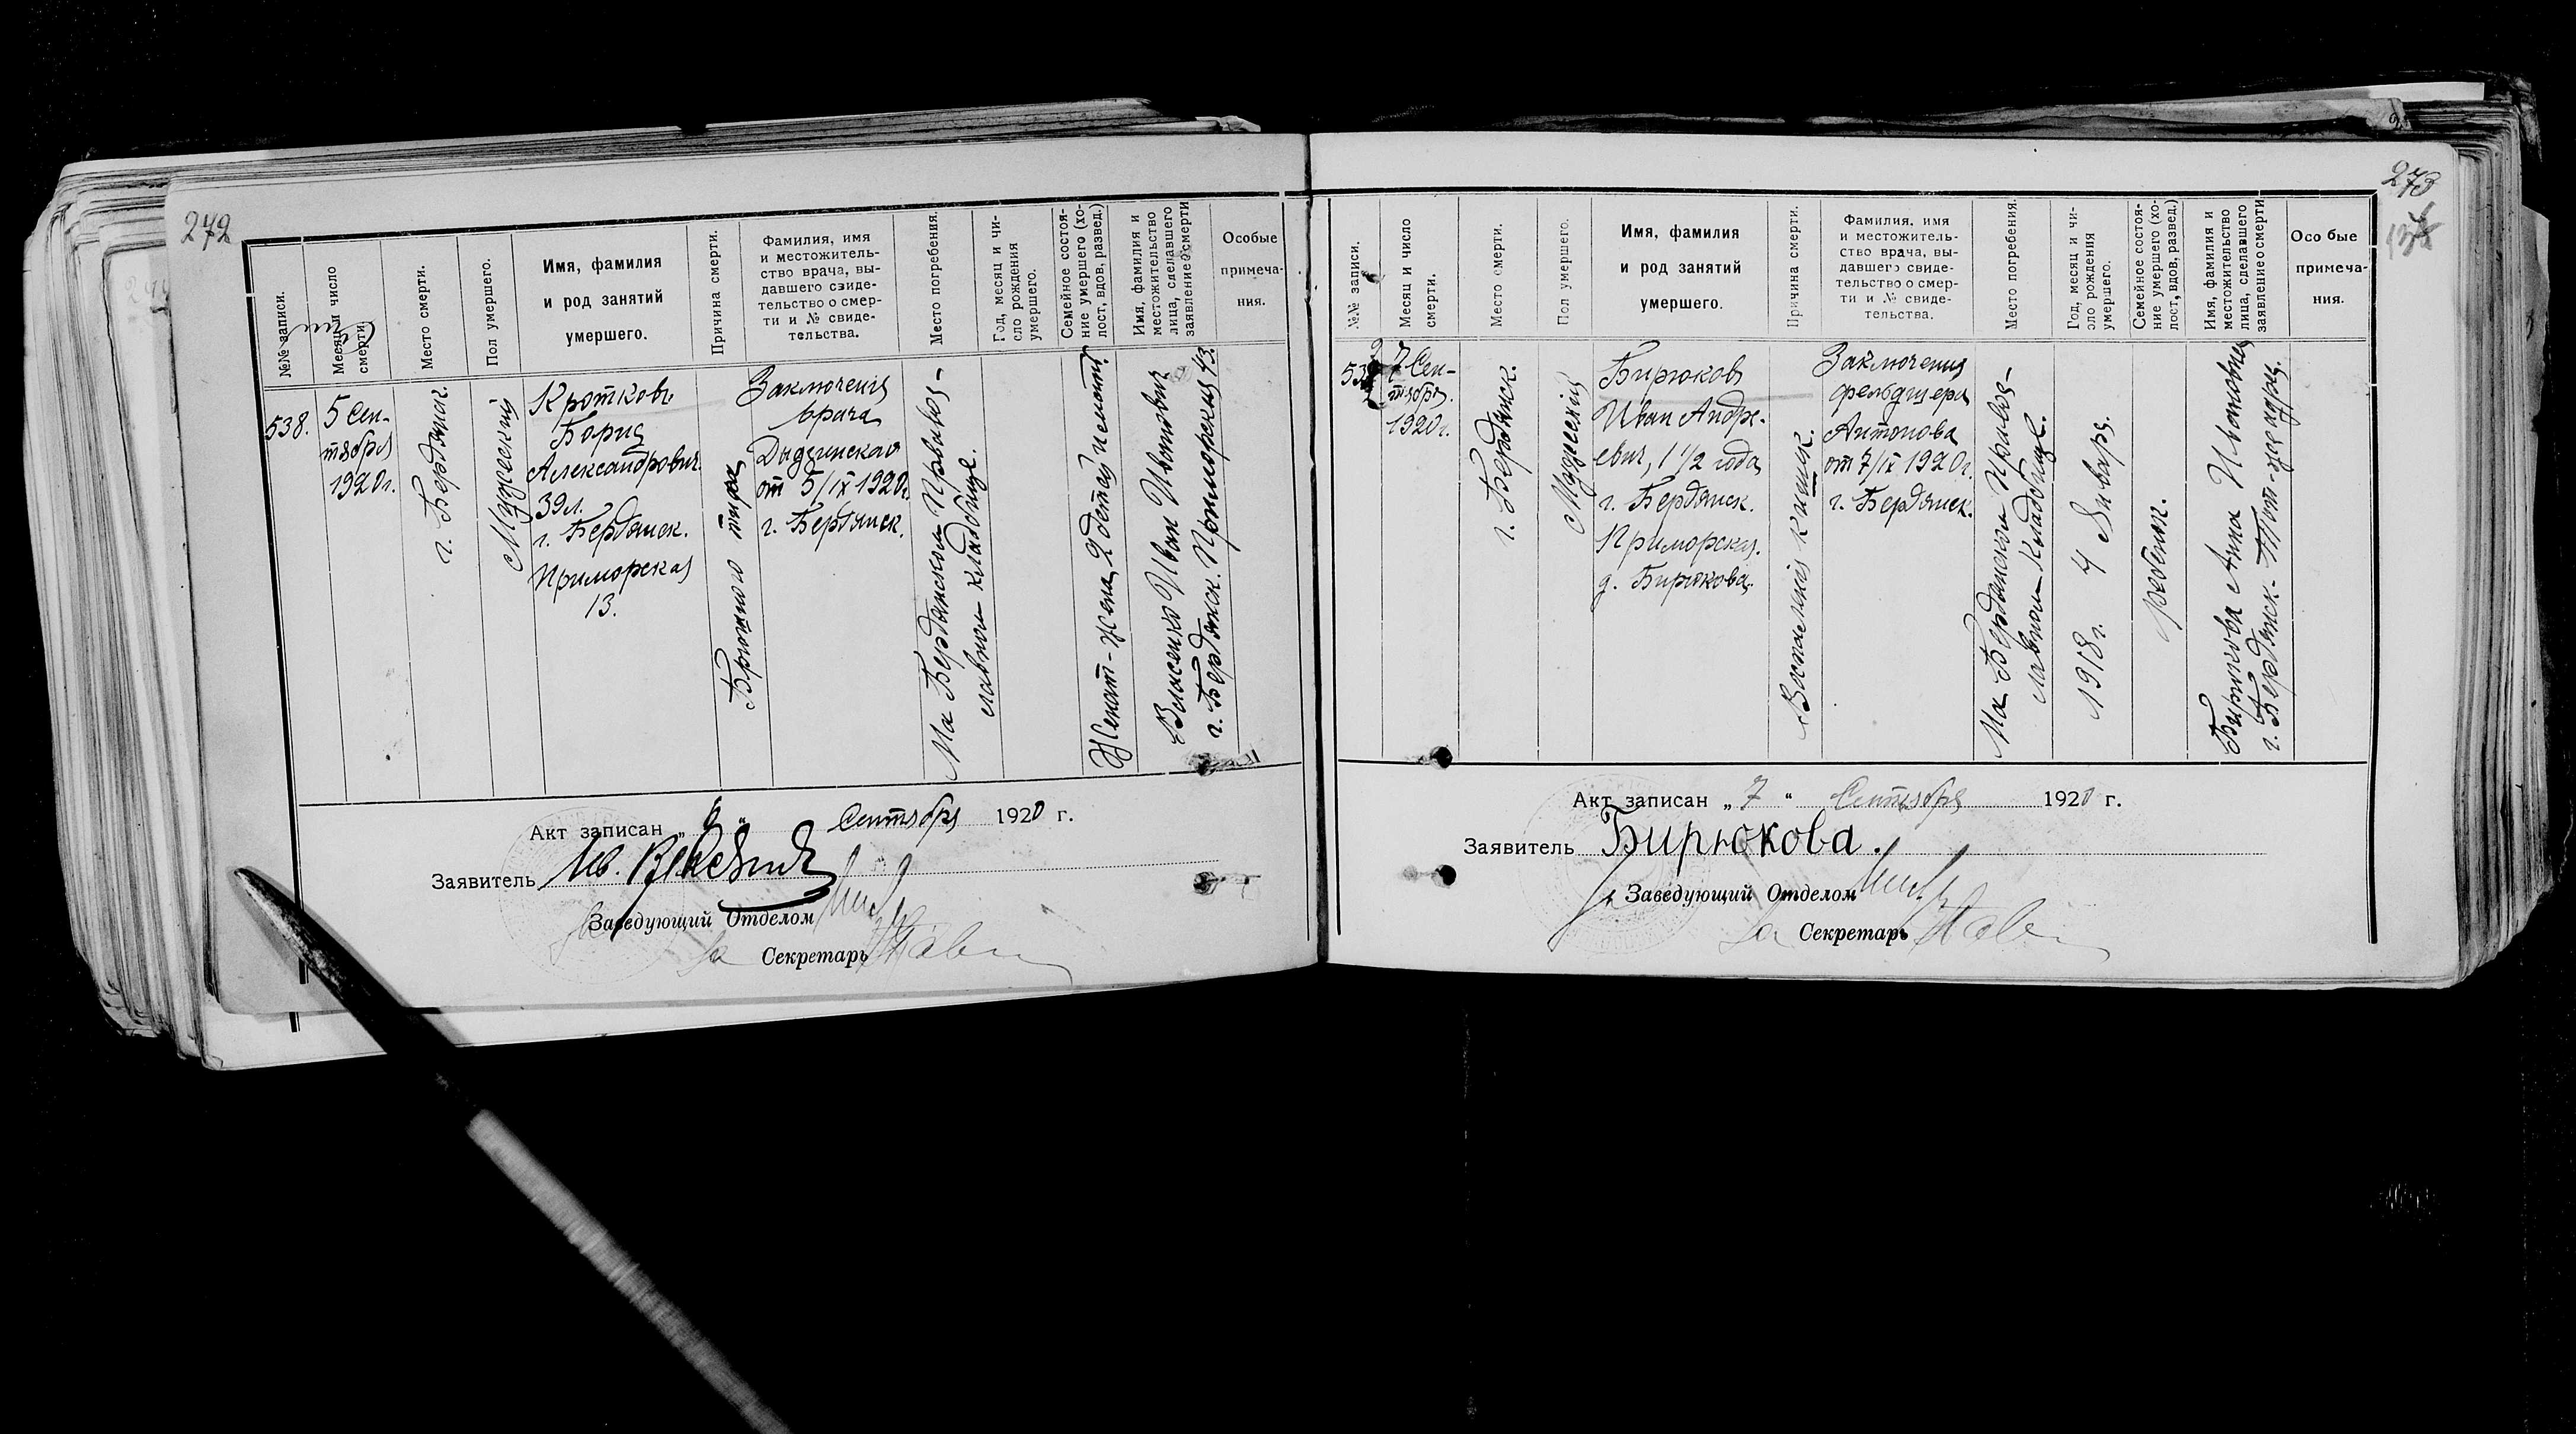 272
№№ записи.
Месяц и число
смерти.
Место смерти.
Пол умершего.
Имя, фамилия
и род занятий
умершего.
Причина смерти.
Фамилия, имя
и местожитель-
ство врача, вы-
давшего свиде-
тельство о смер-
ти и № свиде-
тельства.
Место погребения.
Год, месяц и чи-
сло рождения
умершего.
Семейное состоя-
ние умершего (хо-
лост, вдов, развед.)
Имя, фамилия и
местожительство
лица, сделавшего
заявление о смерти
Особые
примеча-
ния.
538.
5 Сен-
тября
1920г.
г. Бердянск.
Мужеский
Кротковъ
Борис
Александрович
39л.
г. Бердянск.
Приморская
13.
Брюшного тифа
Заключения
врача
от 5/IX 1920г.
г. Бердянск.
На Бердянском Правос-
лавном кладбище.
Женат - жена, 2 детей
Власенко Иван Иванович
г. Бердянск. Приморская 13.
Акт записан „ “ Сентября 1920 г.
Заявитель Ив.
Заведующий Отделом
За Секретарь
273
№№ записи.
Месяц и число
смерти.
Место смерти.
Пол умершего.
Имя, фамилия
и род занятий
умершего.
Причина смерти.
Фамилия, имя
и местожитель-
ство врача, вы-
давшего свиде-
тельство о смер-
ти и № свиде-
тельства.
Место погребения.
Год, месяц и чи-
сло рождения
умершего.
Семейное состоя-
ние умершего (хо-
лост, вдов, развед.)
Имя, фамилия и
местожительство
лица, сделавшего
заявление о смерти
Осо бые
примеча-
ния.
539
7 Сен-
тября.
1920г.
г. Бердянск.
Мужеский
Бирюков
Иван Андре-
евич, 1 1/2 года
г. Бердянск.
Приморская.
д. Бирюкова.
Воспаления кишек.
Заключения
фельдшера
Антонова
от 7/IX 1920г.
г. Бердянск.
На Бердянском Правос-
лавном Кладбище.
1918г. 4 Января.
ребенок.
Бирюкова Анна Ивановна
г. Бердянск. Тот-же адрес.
Акт записан „ 7 “ Сентября 1920 г.
Заявитель Бирюкова.
Заведующий Отделом
За Секретарь